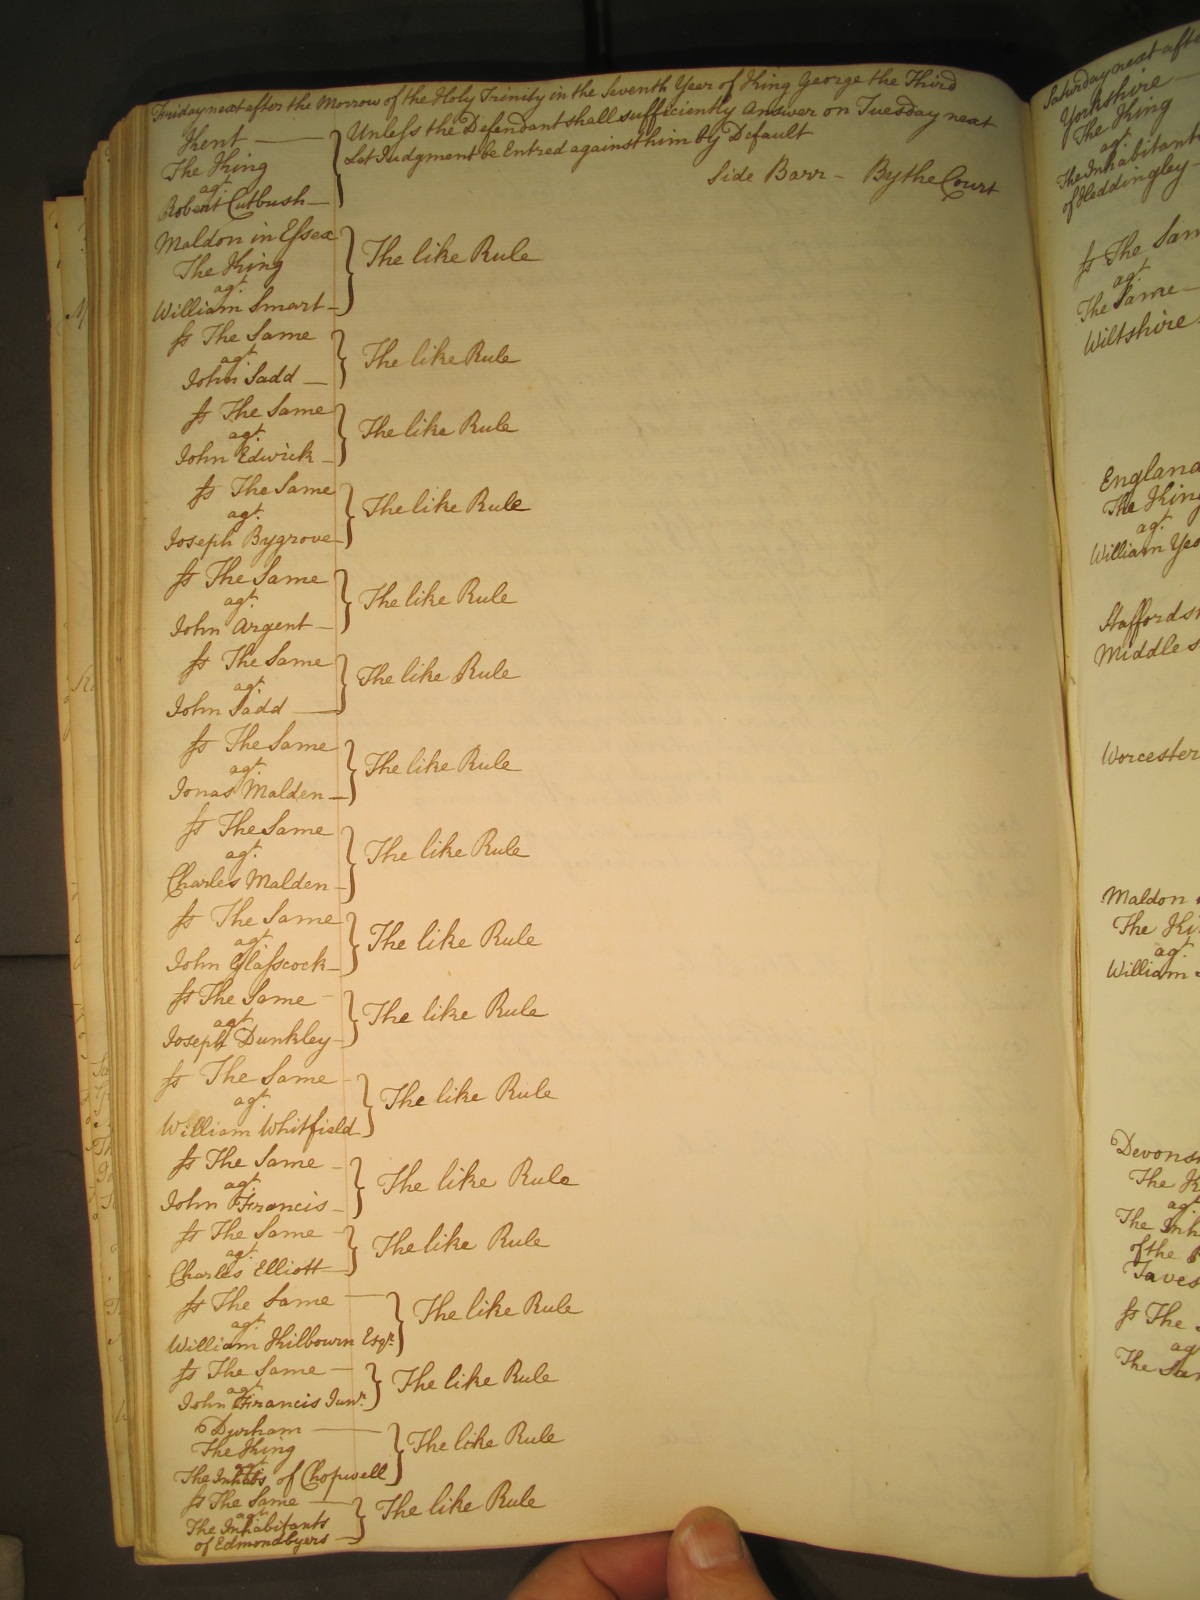 Friday next after the Morrow of the Holy Trinity in the Seventh Year of King George the Third
Kent
The King
agt.
Robert Cutbush
Unless the Defendant shall sufficiently Answer on Tuesday next
Let Judgment be Entred against him by Default
Side Barr - By the Court
Maldon in Essex
The King
agt.
William Smart
The like Rule
Ss The Same
agt.
John Sadd
The like Rule
Ss The Same
agt.
John Edwick
The like Rule
Ss The Same
agt.
Joseph Bygrove
The like Rule
Ss The Same
agt.
John Argent
The like Rule
Ss The Same
agt.
John Sadd
The like Rule
Ss The Same
agt.
Jonas Malden
The like Rule
Ss The Same
agt.
Charles Malden
The like Rule
Ss The Same
agt.
John Glasscock
The like Rule
Ss The Same
agt.
Joseph Dunkley
The like Rule
Ss The Same
agt.
William Whitfield
The like Rule
Ss The Same
agt.
John Francis
The like Rule
Ss The Same
agt.
Charles Elliott
The like Rule
Ss The Same
agt.
William Kilbourn Esqr.
The like Rule
Ss The Same
agt.
John Francis Junr.
The like Rule
Durham
The King
agt.
The Inhabts of Chopwell
The like Rule
Ss The Same
agt.
The Inhabitants
of Edmondbyers
The like Rule
Saturday next after
Yorkshire
The King
agt.
The Inhabitants
of Heddingley
Ss The Same
agt.
The Same
Wiltshire
England
The King
agt.
William
Worcester
Maldon
The
agt.
William
The
agt.
The
of the
Ss The
agt.
The